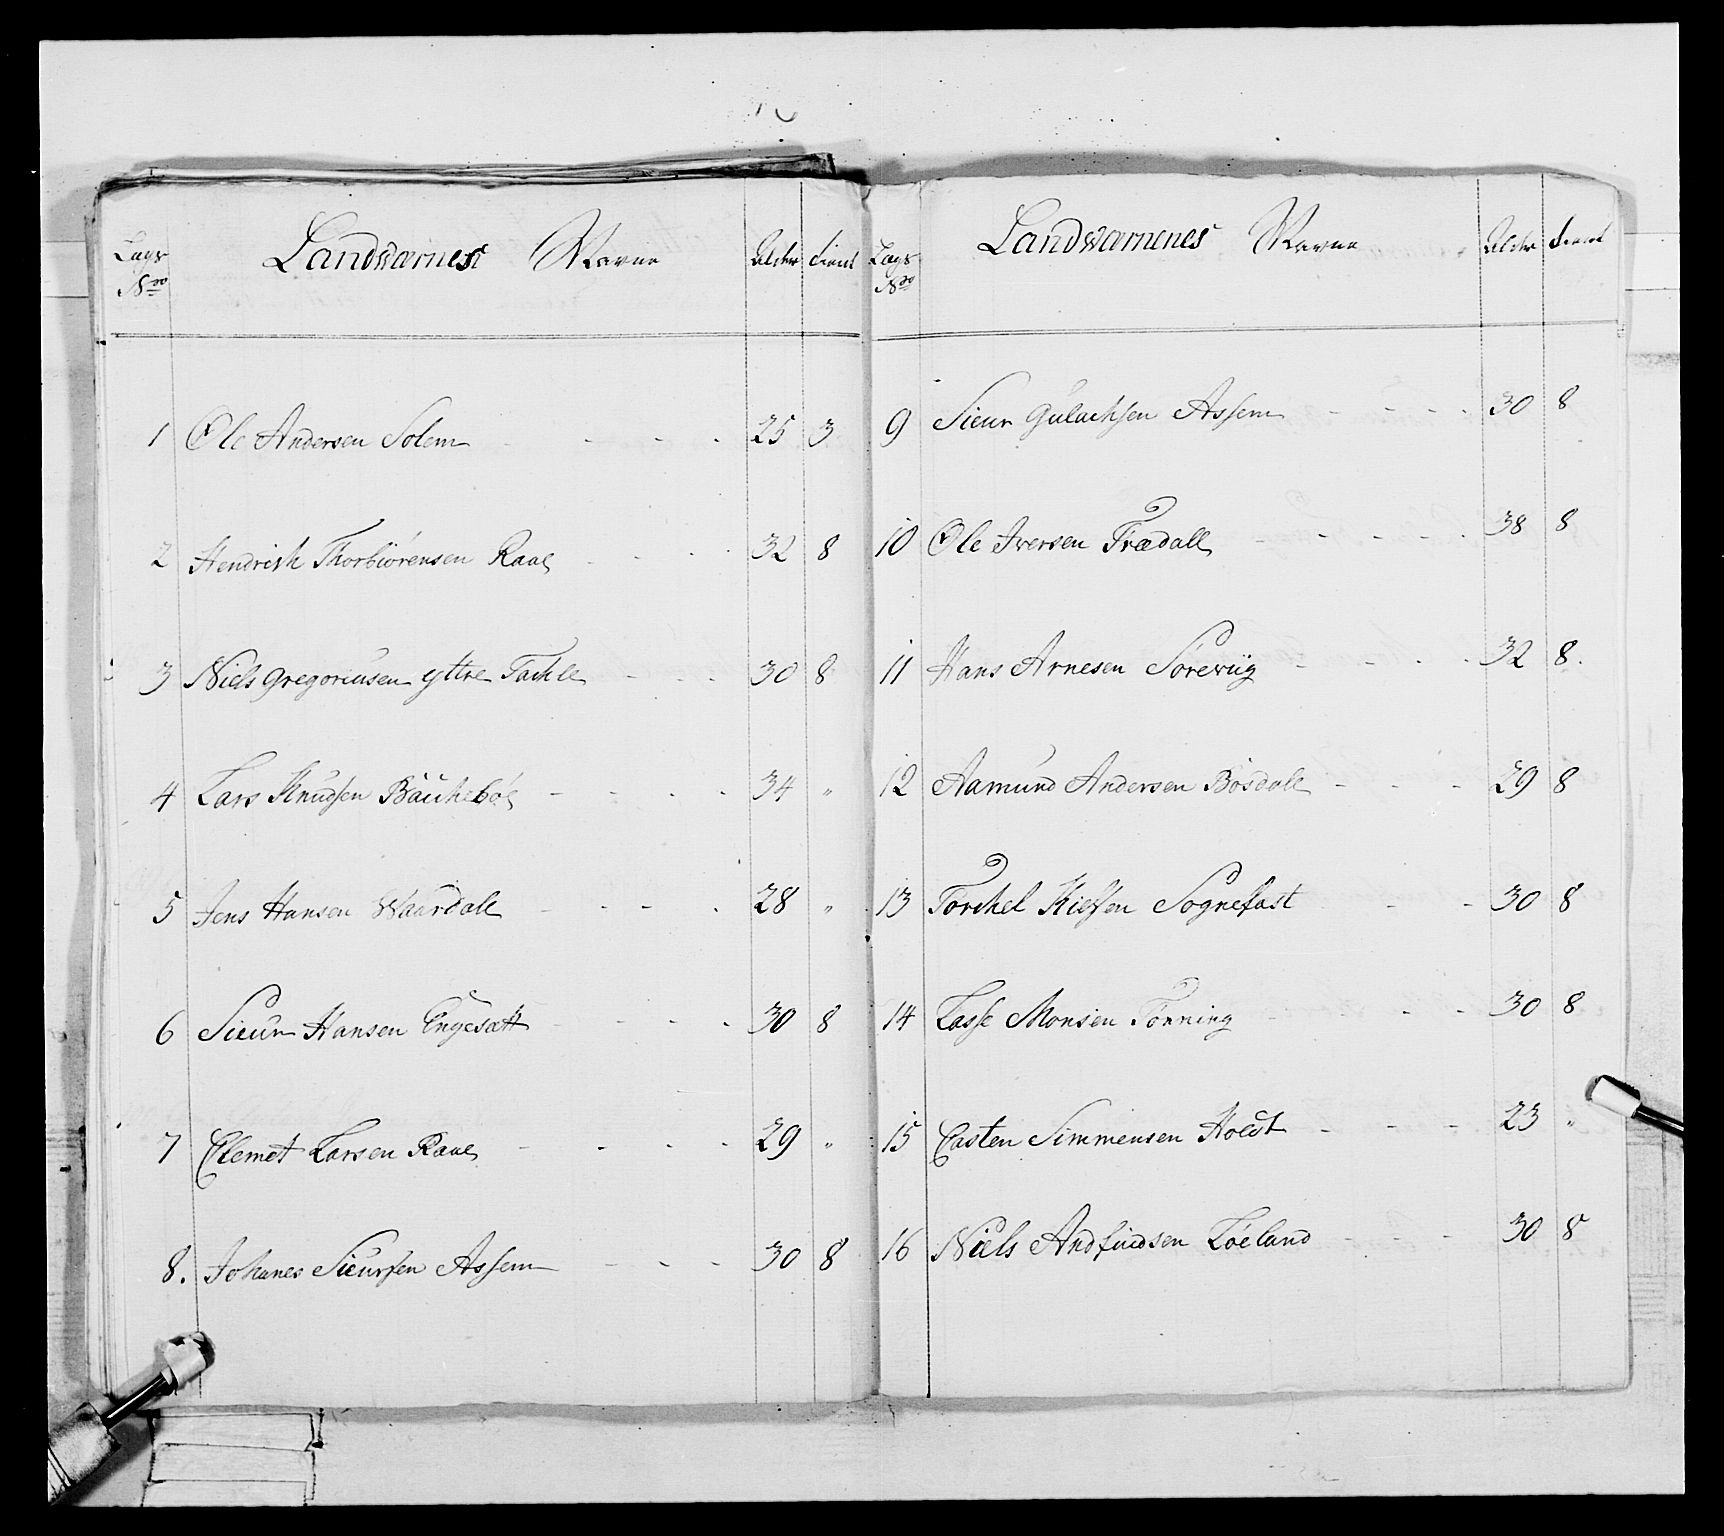 Lags Landwærnes Navne Alder tient
No
1 Ole Andersen Solem 25 3
2 Hendrich Thorbiörensen Raae 32 8
3 Niels Gregoriusen yttre Tachle 30 8
4 Lars Knudsen Bauheböe 34 "
5 Jens Hansen Waardall 28 "
6 Sieur Hansen Engesætt 30 8
7 Clemet Larsen Raae 29 "
8. Johanes Sieursen Assem 30 8
Lags Landwærnenes Navne Alder tient
No
9 Sieur Gulachsen Assem 30 8
10 Ole Iversen Trædall 38 8
11 Hans Arnesen Sörevüg 32 8.
12 Aamund Andersen Bösdall 29 8
13 Torchel Kielsen Sognefast 30 8
14 Lasse Monsen Tönning 30 8
15 Casten Simmensen Holdt 23 "
16 Niels Andfindsen Löeland 30 8